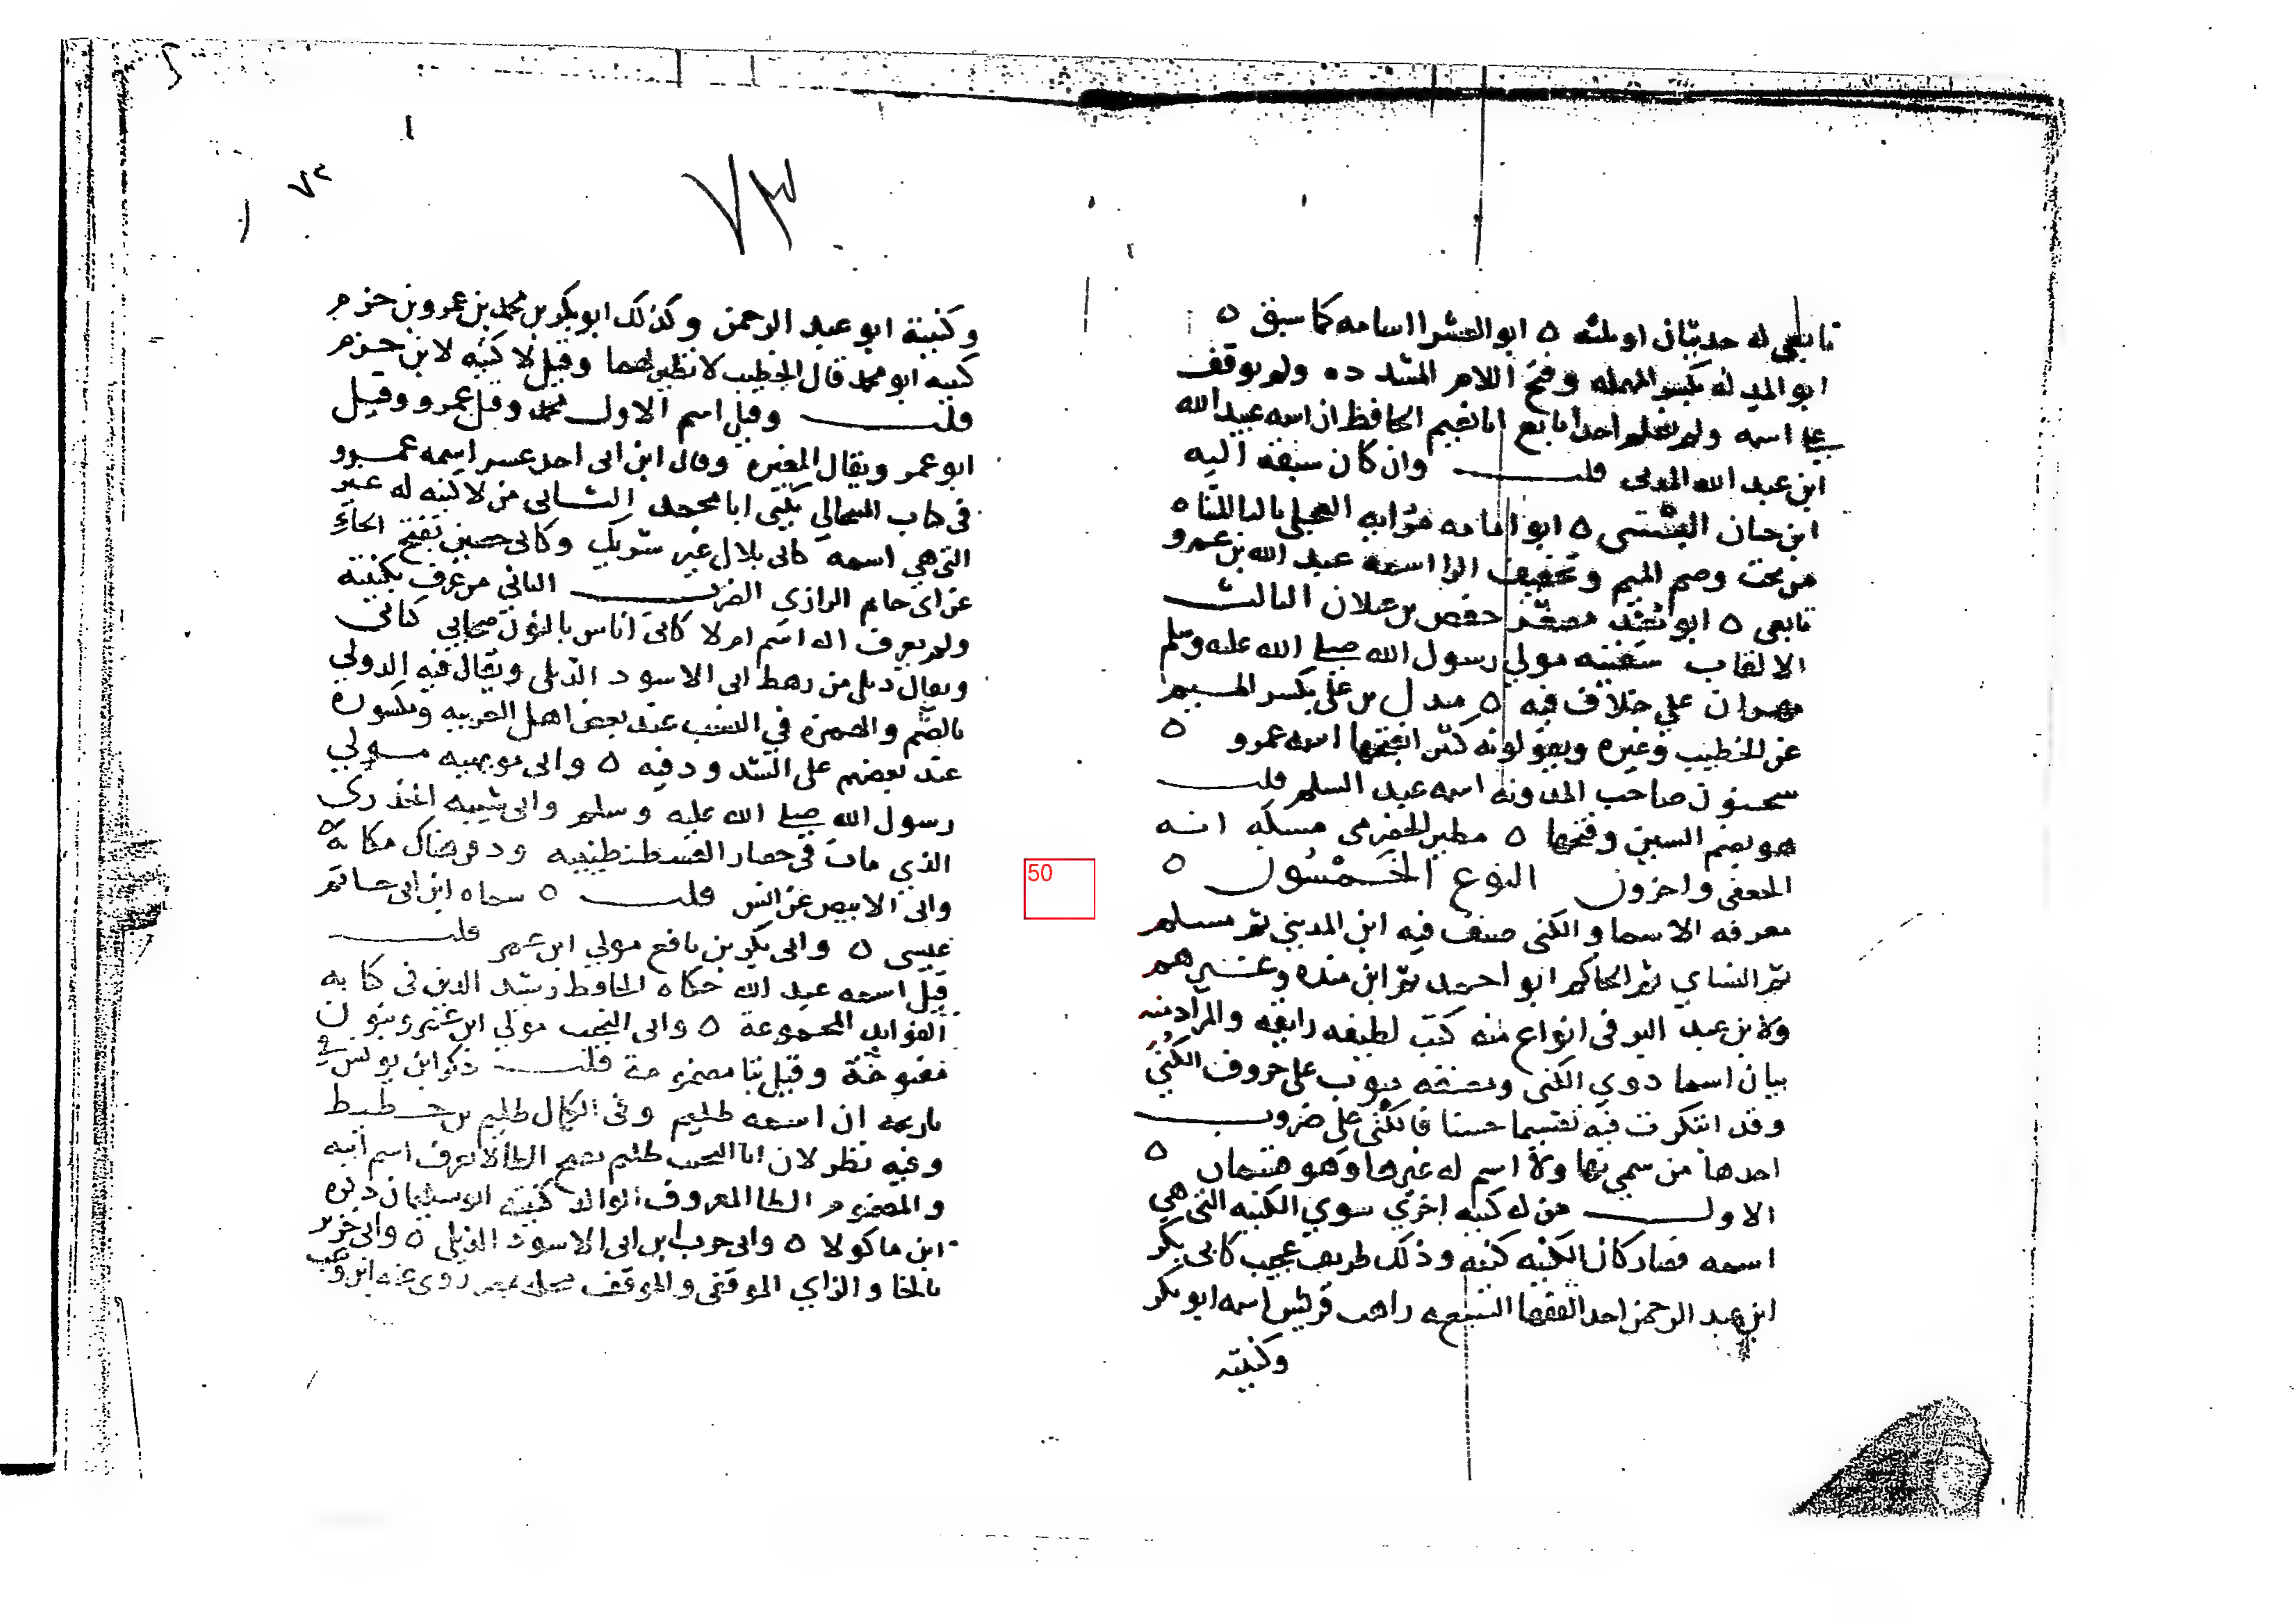 ٧٣
٧٣
تابعي له حديثان او ثلثه ٥ ابو العشرا اسامه كما سبق ٥
ابو المدله بكسر المهمله وفتح اللام المشدده ولم يوقف
على اسمه ولم نعلم احدا تابع ابا نعيم الحافظ ان اسمه عبيد الله
ابن عبد الله المدني قلت وان كان سبقه اليه
ابن حبان البستي ٥ ابو مرايه العجلي باليا المثناه
من تحت وضم الميم وتخفيف الرا اسمه عبد الله بن عمرو
تابعي ٥ ابو معيد مصغر حفص بن غيلان الثالث
الالقاب سفينه مولي رسول الله صلى الله عليه وسلم
مهران علي خلاف فيه ٥ مندل بن علي بكسر الميم
عن الخطيب وغيره ويقولونه كثيرا بفتحها اسمه عمرو ٥
سحنون صاحب المدونه اسمه عبد السلم قلت
هو بضم السين وفتحها ٥ مطين الحضرمي مشكدانه
الجعفي واخرون النوع الخمسون ٥
معرفه الاسما والكنى صنف فيه ابن المديني ثم مسلم
ثم النساي ثم الحاكم ابو احمد ثم ابن منده وغيرهم
ولابن عبد البر في انواع منه كتب لطيفه رايقه والمراد منه
بيان اسما ذوي الكنى ومصنفه مبوب على حروف الكنى
وقد ابتكرت فيه تقسيما حسنا فالكنى على ضروب
احدها من سمي بها ولا اسم له غيرها وهو قسمان ٥
الاول من له كنيه اخري سوي الكنيه التي هي
اسمه فصار كان الكنيه كنيه وذلك طريف عجيب كابي بكر
ابن عبد الرحمن احد الفقها السبعه راهب قريش اسمه ابو بكر
وكنيته
وكنيته ابو عبد الرحمن وكذلك ابو بكر بن محمد بن عمرو بن حزم
كنيه ابو محمد قال الخطيب لا نظير لهما وقيل لا كنيه لابن حزم
قلت وقيل اسم الاول محمد وقيل عمرو وقيل
ابو عمر ويقال المغيره وقال ابن ابي احد عشر اسمه عمرو
يكنى ابا محمد الثاني من لا كنيه له غير
التي هي اسمه كابي بلال عن شريك وكابي حصين بفتح الحاء
عن ابي حاتم الرازي الضرب الثاني من عرف بكنيته
ولم يعرف اله اسم ام لا كابي اناس بالنون صحابي كناني
ويقال ديلي من رهط ابي الاسود الديلي ويقال فيه الدولي
بالضم والهمزه في النسب عند بعض اهل العربيه ومكسوره
عند بعضهم على الشذوذ فيه ٥ وابي مويهبه مولي
رسول الله صلى الله عليه وسلم وابي شيبه الخدري
الذي مات في حصار القسطنطينيه ودفن هناك مكانه
وابي الابيض عن انس قلت ٥ سماه ابن ابي حاتم
عيسى ٥ وابي بكر بن نافع مولي ابن عمر قلت
قيل اسمه عبد الله حكاه الحافظ رشيد الدين في كتابه
الفوايد المجموعة ٥ وابي النجيب مولي ابن عمرو بنون
مفتوحة وقيل بتا مضمومة قلت ذكر ابن يونس في
تاريخه ان اسمه ظليم وفي الاكمال ظليم بن حطيط
وفيه نظر لان ابا النجيب ظليم بفتح الظا لا يعرف اسم ابيه
والمضموم الظا المعروف الوالد كنيته ابو سليمان ذكره
ابن ماكولا ٥ وابي حرب ابن ابي الاسود الديلي ٥ وابي حريز
بالحا والزاي الموقفي والموقف محله بمصر روى عنه ابن وهب